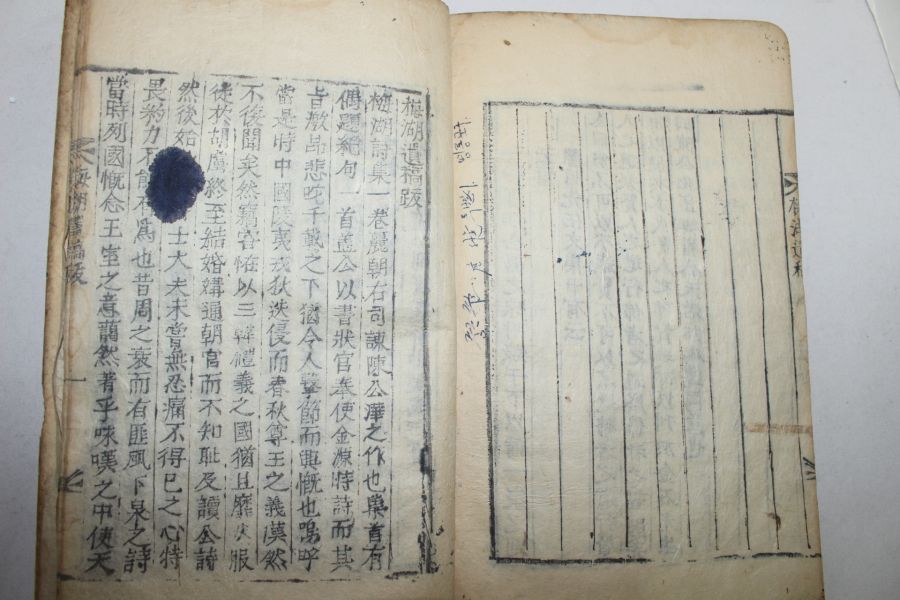 梅湖遺稿
梅湖遺稿跋
梅湖詩集一卷麗朝右司諫陳公澕之作也卷首有
偶題絶句一首盖公以書狀官奉使金源時詩而其
旨激昂悲咤千載之下猶令人擊節而興慨也嗚呼
當是時中國陵夷戎狄迭侵而春秋尊王之義漠然
不後聞矣然竊嘗怪以三韓禮義之國猶且靡然服
從於胡虜終至結婚媾通朝官而不知耻及讀公詩
然後始 士大夫未嘗無忍痛不得已之心特
畏約力不能有爲也昔周之衰而有匪風下泉之詩
當時列國慨念王室之意藹然著乎咏嘆之中使天
梅湖遺稿跋
一